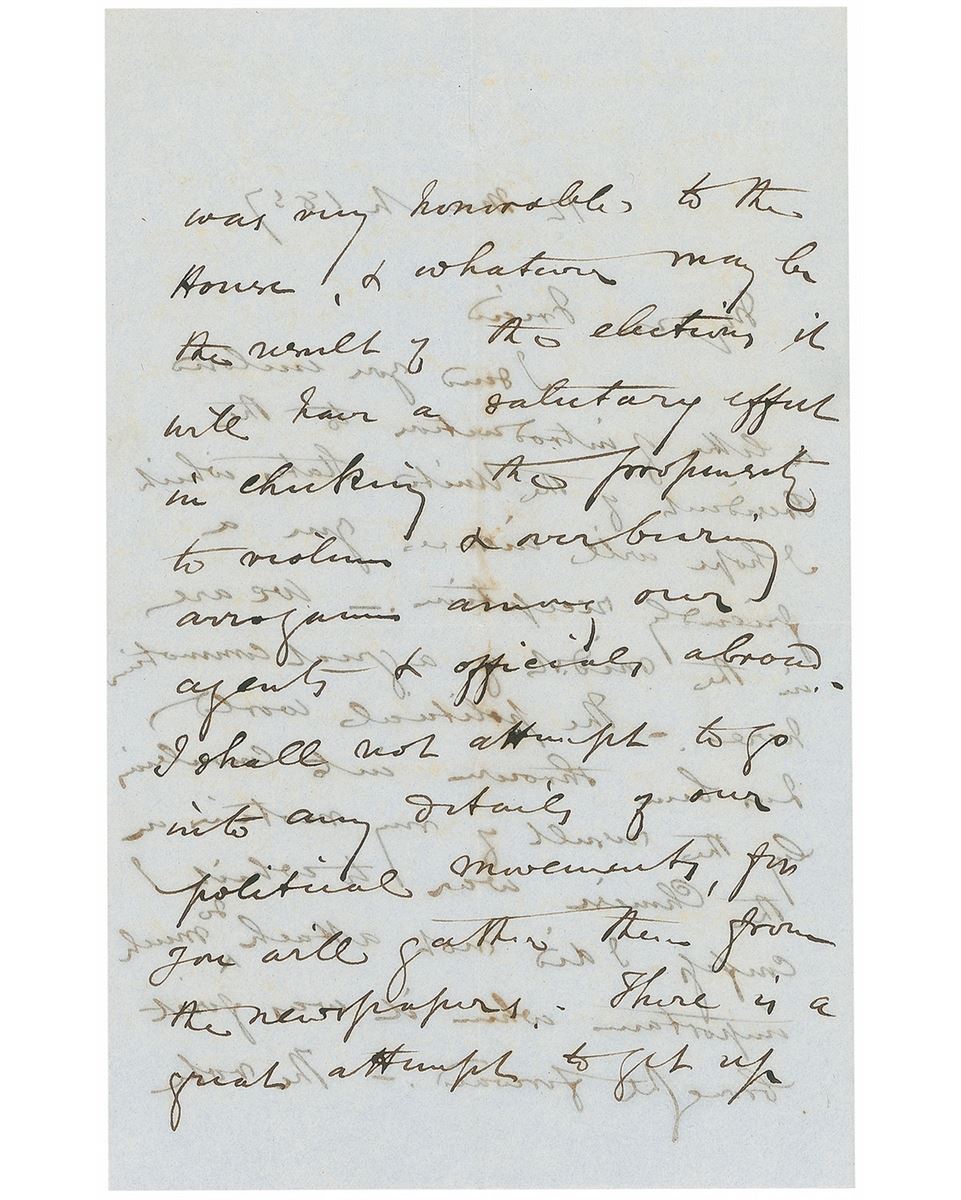 was very honorable to the
House, & whatever may be
the result of the elections it
will have a salutary effect
in checking the propensity
to violence & overbearing
arrogance among our
agents & officials abroad.
I shall not attempt to go
into any details of our
political movements, for
you will gather them from
the newspapers. - There is a
great attempt to get up